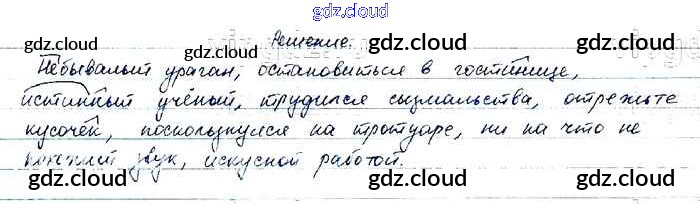 gdz.cloud
Решение:
gdz.cloud gdz.cloud gdz.cloud
Небывалый ураган, остановиться в гостинице,
истинный учёный, трудился сызмальства, отрежьте
кусочек, поскользнулся на тротуаре, ни на что не
gdz.cloud gdz.cloud gdz.cloud
похожий звук, искусной работой.
gdz.cloud gdz.cloud gdz.cloud